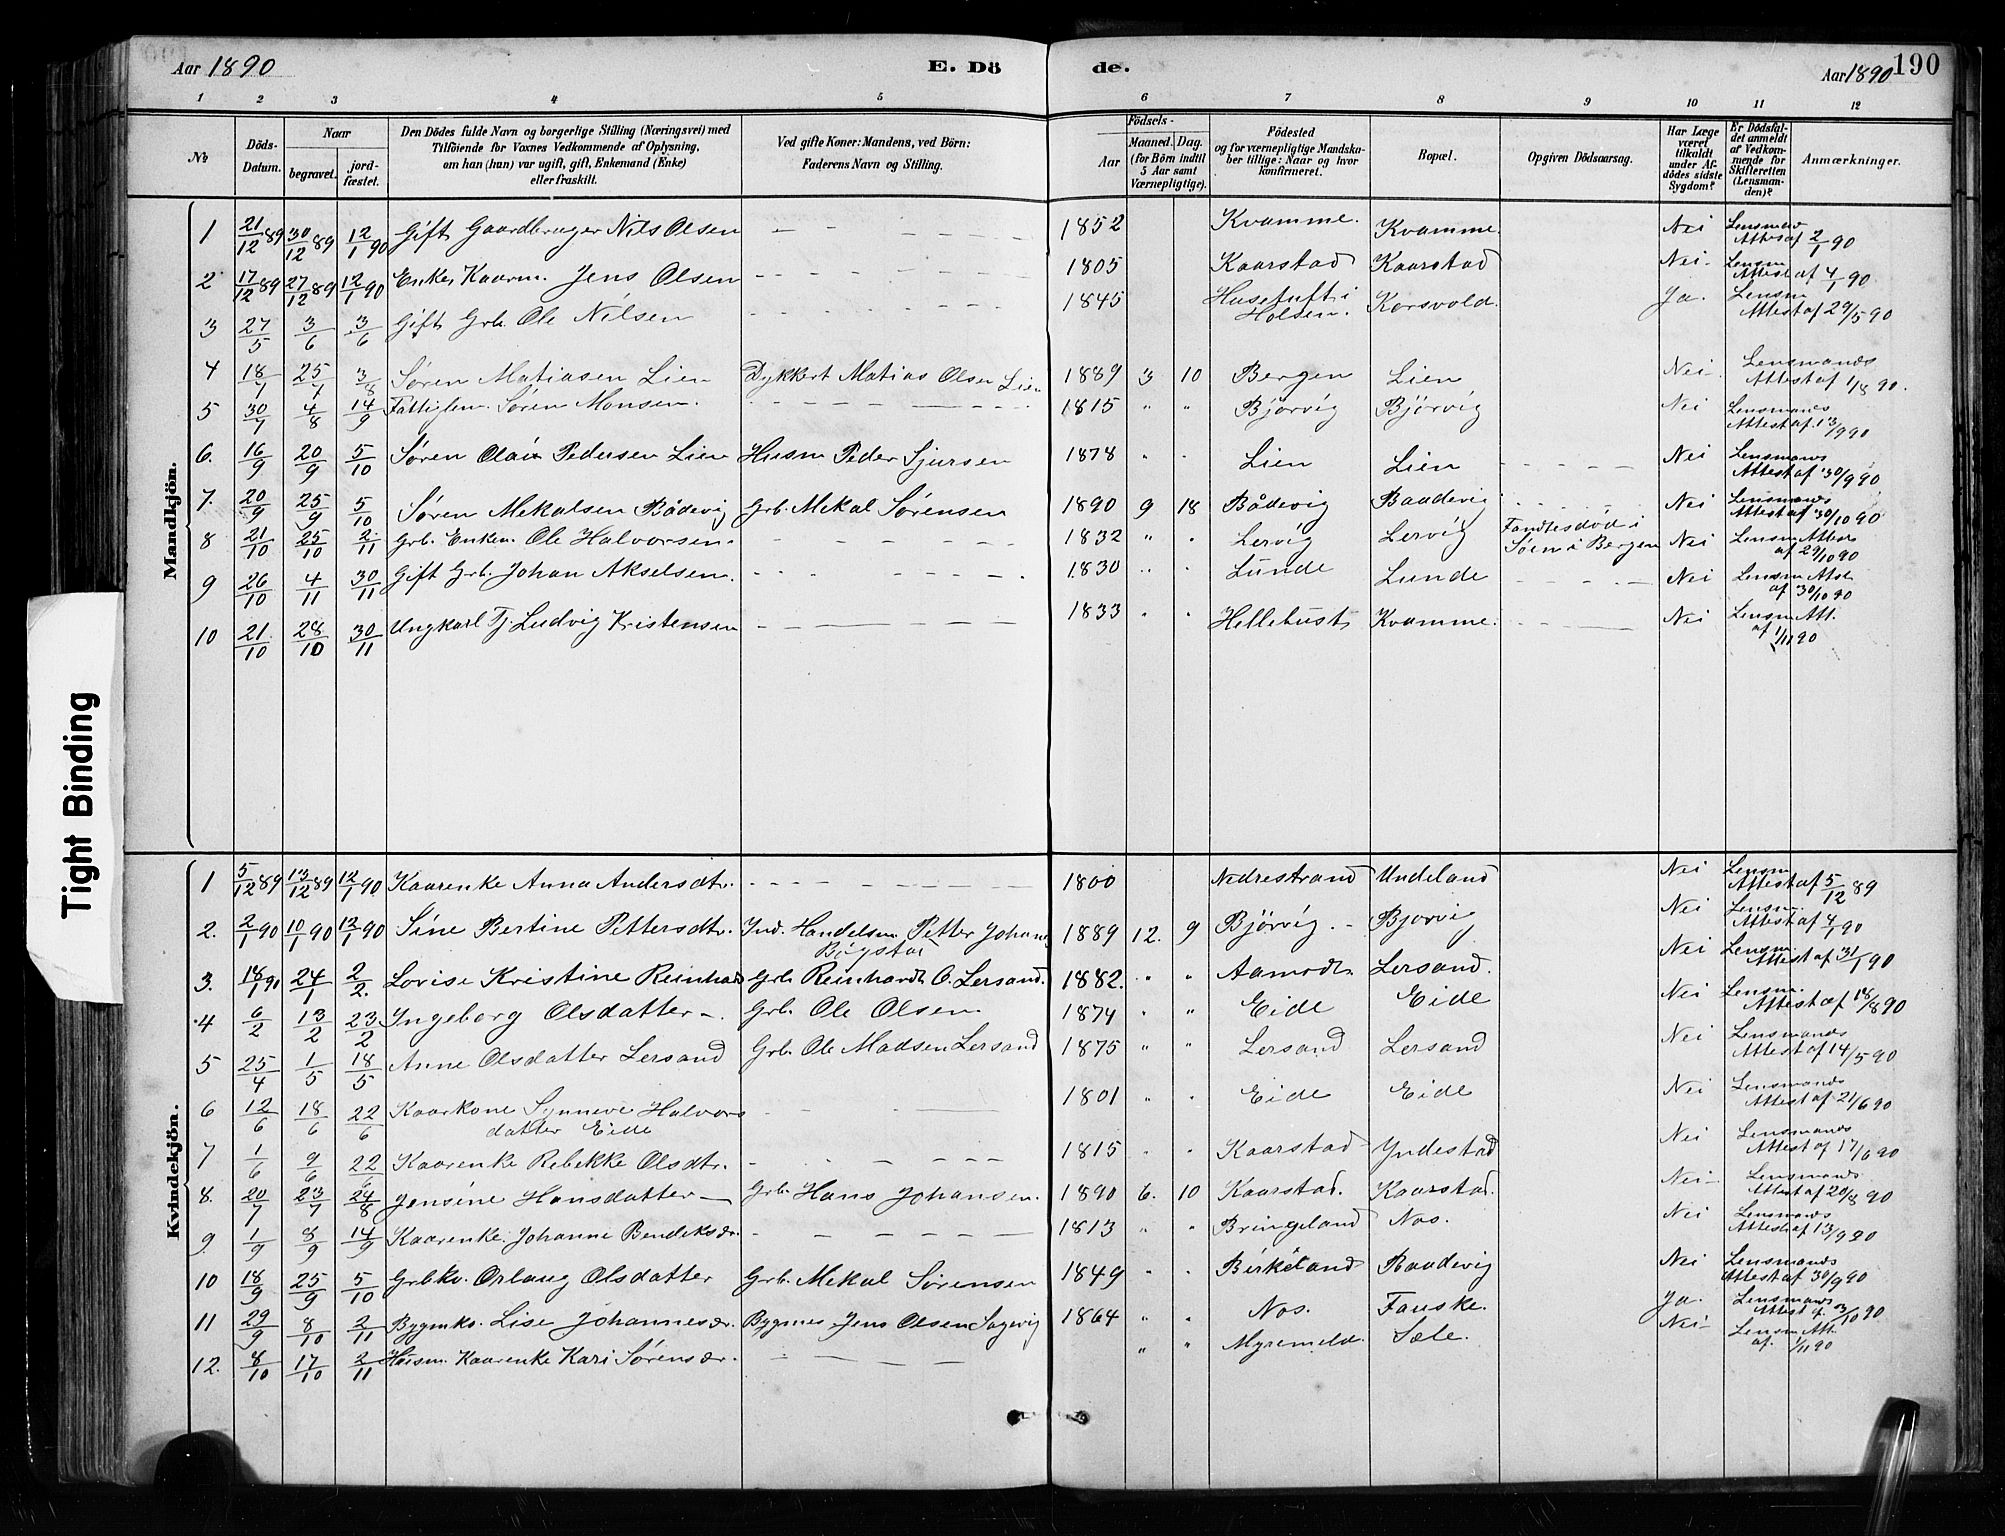 Aar 1890
E. Dö
de.
Aar 1890
190
1 2 3 4 5 6 7 8 9 10 11 12
№
Döds-Datum.
Naar
begravet.
jord-fæstet.
Den Dödes fulde Navn og borgerlige Stilling (Næringsvei) med
Tilföiende for Voxnes Vedkommende af Oplysning,
om han (hun) var ugift, gift, Enkemand (Enke)
eller fraskilt.
Ved gifte Koner: Mandens, ved Börn:
Faderens Navn og Stilling.
Födsels-
Aar
Maaned. Dag.
(for Börn indtil
5 Aar samt
Værnepligtige).
Födested
og for værnepligtige Mandska-
ber tillige: Naar og hvor
konfirmeret.
Bopæl.
Opgiven Dödsaarsag.
Har Læge
været
tilkaldt
under Af-
dödes sidste
Sygdom?
Er Dödsfal-
det anmeldt
af Vedkom-
mende for
Skifteretten
(Lensman-
den)?
Anmærkninger.
Mandkjön.
1 21/12 89 30/12 89 12/1 90 Gift Gaardbruger Nils Olsen 1852 Kvamme. Kvamme. Nei Lensmands Attest af 2/1 90
2 17/12 89 27/12 89 12/1 90 Enkem. Kaarm. Jens Olsen 1805 Kaarstad Kaarstad Nei Lensm Attest af 4/1 90
3 27/5 3/6 3/6 Gift Grb. Ole Nilsen 1845 Husetuft i Holsen. Korsvold. Ja. Lensm Attest af 29/5 90
4 18/7 25/7 3/8 Søren Matiasen Lien Dykkert Matias Olsen Lien 1889 3 10 Bergen Lien Nei Lensmands Attest af 1/8 90.
5 30/7 4/8 14/9 Fattiglem. Søren Monsen. 1815 " " Bjørvig Bjørvig Nei Lensmands Attest af 13/9 90
6. 16/9 20/9 5/10 Søren Olai Pedersen Lien Husm Peder Sjursen 1878 " " Lien Lien Nei Lensmands Attest af 30/9 90
7. 20/9 25/9 5/10 Søren Mekalsen Bådevig Grb. Mekal Sørensen 1890 9 18 Bådevig Baadevig Nei Lensmands Attest af 30/10 90
8 21/10 25/10 2/11 Grb. Enkem. Ole Halvorsen 1832 " " Lervig Lervig Fandtes död i Søen i Bergen Nei Lensm Attest af 29/10 90
9 26/10 4/11 30/11 Gift Grb. Johan Akselsen. 1830 " " Lunde Lunde Nei Lensm Attst af 30/10 90
10 21/10 28/10 30/11 Ungkarl Tj. Ludvig Kristensen 1833 " " Hellebust Kvamme. Nei Lensm Att. af 1/11 90
Kvindekjön.
1 5/12 89 13/12 89 12/1 90 Kaarenke Anna Andersdtr. 1800 Nedrestrand Undeland Nei Lensm Attest af 5/12 89
2. 2/1 90 10/1 90 12/1 90 Sine Bertine Pettersdtr. Ind. Handelsm Petter Johan Bøgstad 1889 12. 9 Bjørvig. Bjorvig Nei Lensm. Attest af 4/1 90
3. 18/1 90 24/1 2/2. Lovise Kristine Reinhards Grb Reinhardt O. Lersand. 1882. " " Aamodt Lersand. Nei Lensm. Attest af 31/1 90
4 6/2 13/2 23/2 Ingeborg Olsdatter Grb. Ole Olsen 1874 " " Eide Eide Nei Lensm. Attest af 18/8 90
5 25/4 1/5 18/5 Anne Olsdatter Lersand Grb. Ole Madsen Lersand 1875 " " Lersand Lersand Nei Lensmands Attest af 14/5 90
6 12/6 18/6 22/6 Kaarkone Synneve Halvors datter Eide 1801 " " Eide Eide Nei Lensmands Attest af 21/6 90
7 1/6 9/6 22/6 Kaarenke Rebekke Olsdtr. 1815 " " Kaarstad Yndestad Nei Lensmands Attest af 17/6 90
8. 20/7 23/7 24/8 Jensine Hansdatter Grb. Hans Johansen. 1890 6. 10 Kaarstad. Kaarstad. Nei Lensmands Attest af 20/8 90
9 1/9 8/9 14/9 Kaarenke. Johanne Bendiksdr. 1813 " " Bringeland Nos. Nei Lensmands Attest af 13/9 90
10 18/9 25/9 5/10 Grbko. Orlaug Olsdatter Grb. Mekal Sørensen 1849 " " Birkeland Baadevig Nei Lensmands Attest af 30/9 90
11 29/9 8/10 2/11 Bygmko. Lise Johannesdr. Bygmes. Jens Olsen Sagevig 1864 " " Nos. Fauske. Ja. Lensmands Attest af 3/10 90
12. 8/10 17/10 2/11 Husm. Kaarenke Kari Sørensdr. " " Myremeld. Sæle. Nei Lensm Att. af. 1/11 90
Tight Binding